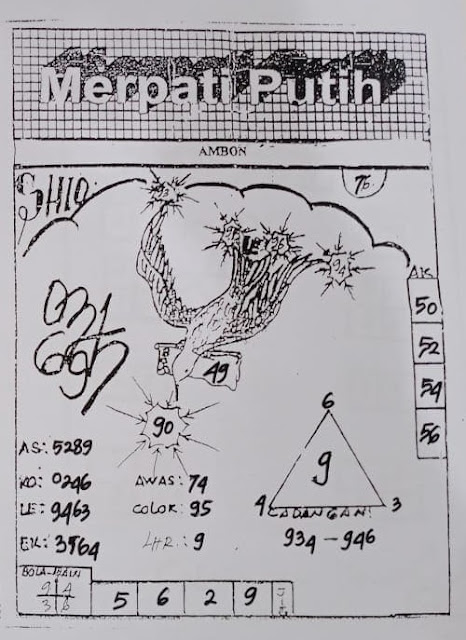 Merpati Putih
AMBON
SHIO:
76
96
94
AK
50
52
54
56
49
90
AS: 5289
KO: 0246
LE: 9463
EK: 3764
AWAS: 74
COLOK: 95
LHR: 9
6
9
4
3
CADANGAN:
934 – 946
BOLA-MAIN
9 4
3 6
5 6 2 9